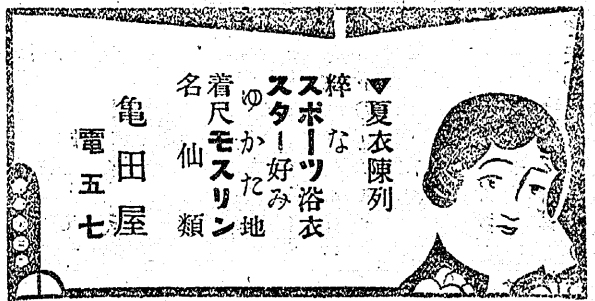 ▼夏衣陳列
粋な
スポーツ浴衣
スター好み
ゆかた地
着尺モスリン
名仙類
亀田屋
電五七